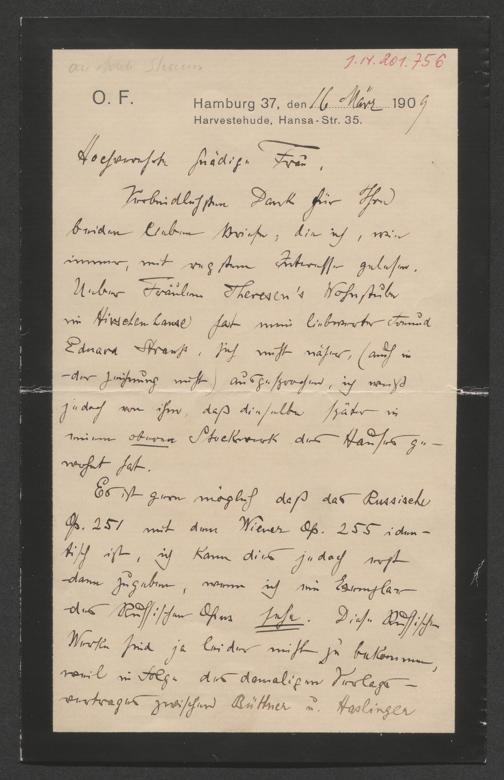 an Adele Strauss
J.N.201.756
O. F.
Hamburg 37, den 16 März 1909
Harvestehude, Hansa-Str. 35.
Hochverehrte gnädige Frau,
Verbindlichsten Dank für Ihre
beiden lieben Briefe, die ich, wie
immer, mit regstem Interesse gelesen.
Ueber Fräulein Theresen's Wohnstube
im Hirschenhause hat mein liebwerter Freund
Eduard Strauß, sich nicht näher, (auch in
der Zeichnung nicht) ausgesprochen, ich weiß
jedoch von ihm, daß dieselbe später in
einem oberen Stockwerk des Hauses ge-
wohnt hat.
Es ist gern möglich daß das Russische
Op. 251 mit dem Wiener Op. 255 iden-
tisch ist, ich kann dies jedoch erst
dann zugeben, wenn ich ein Exemplar
des Russischen Opus sehe. Diese Russischen
Werke sind ja leider nicht zu bekommen,
weil in Folge des damaligen Verlags-
vertrages zwischen Büttner u. Haslinger